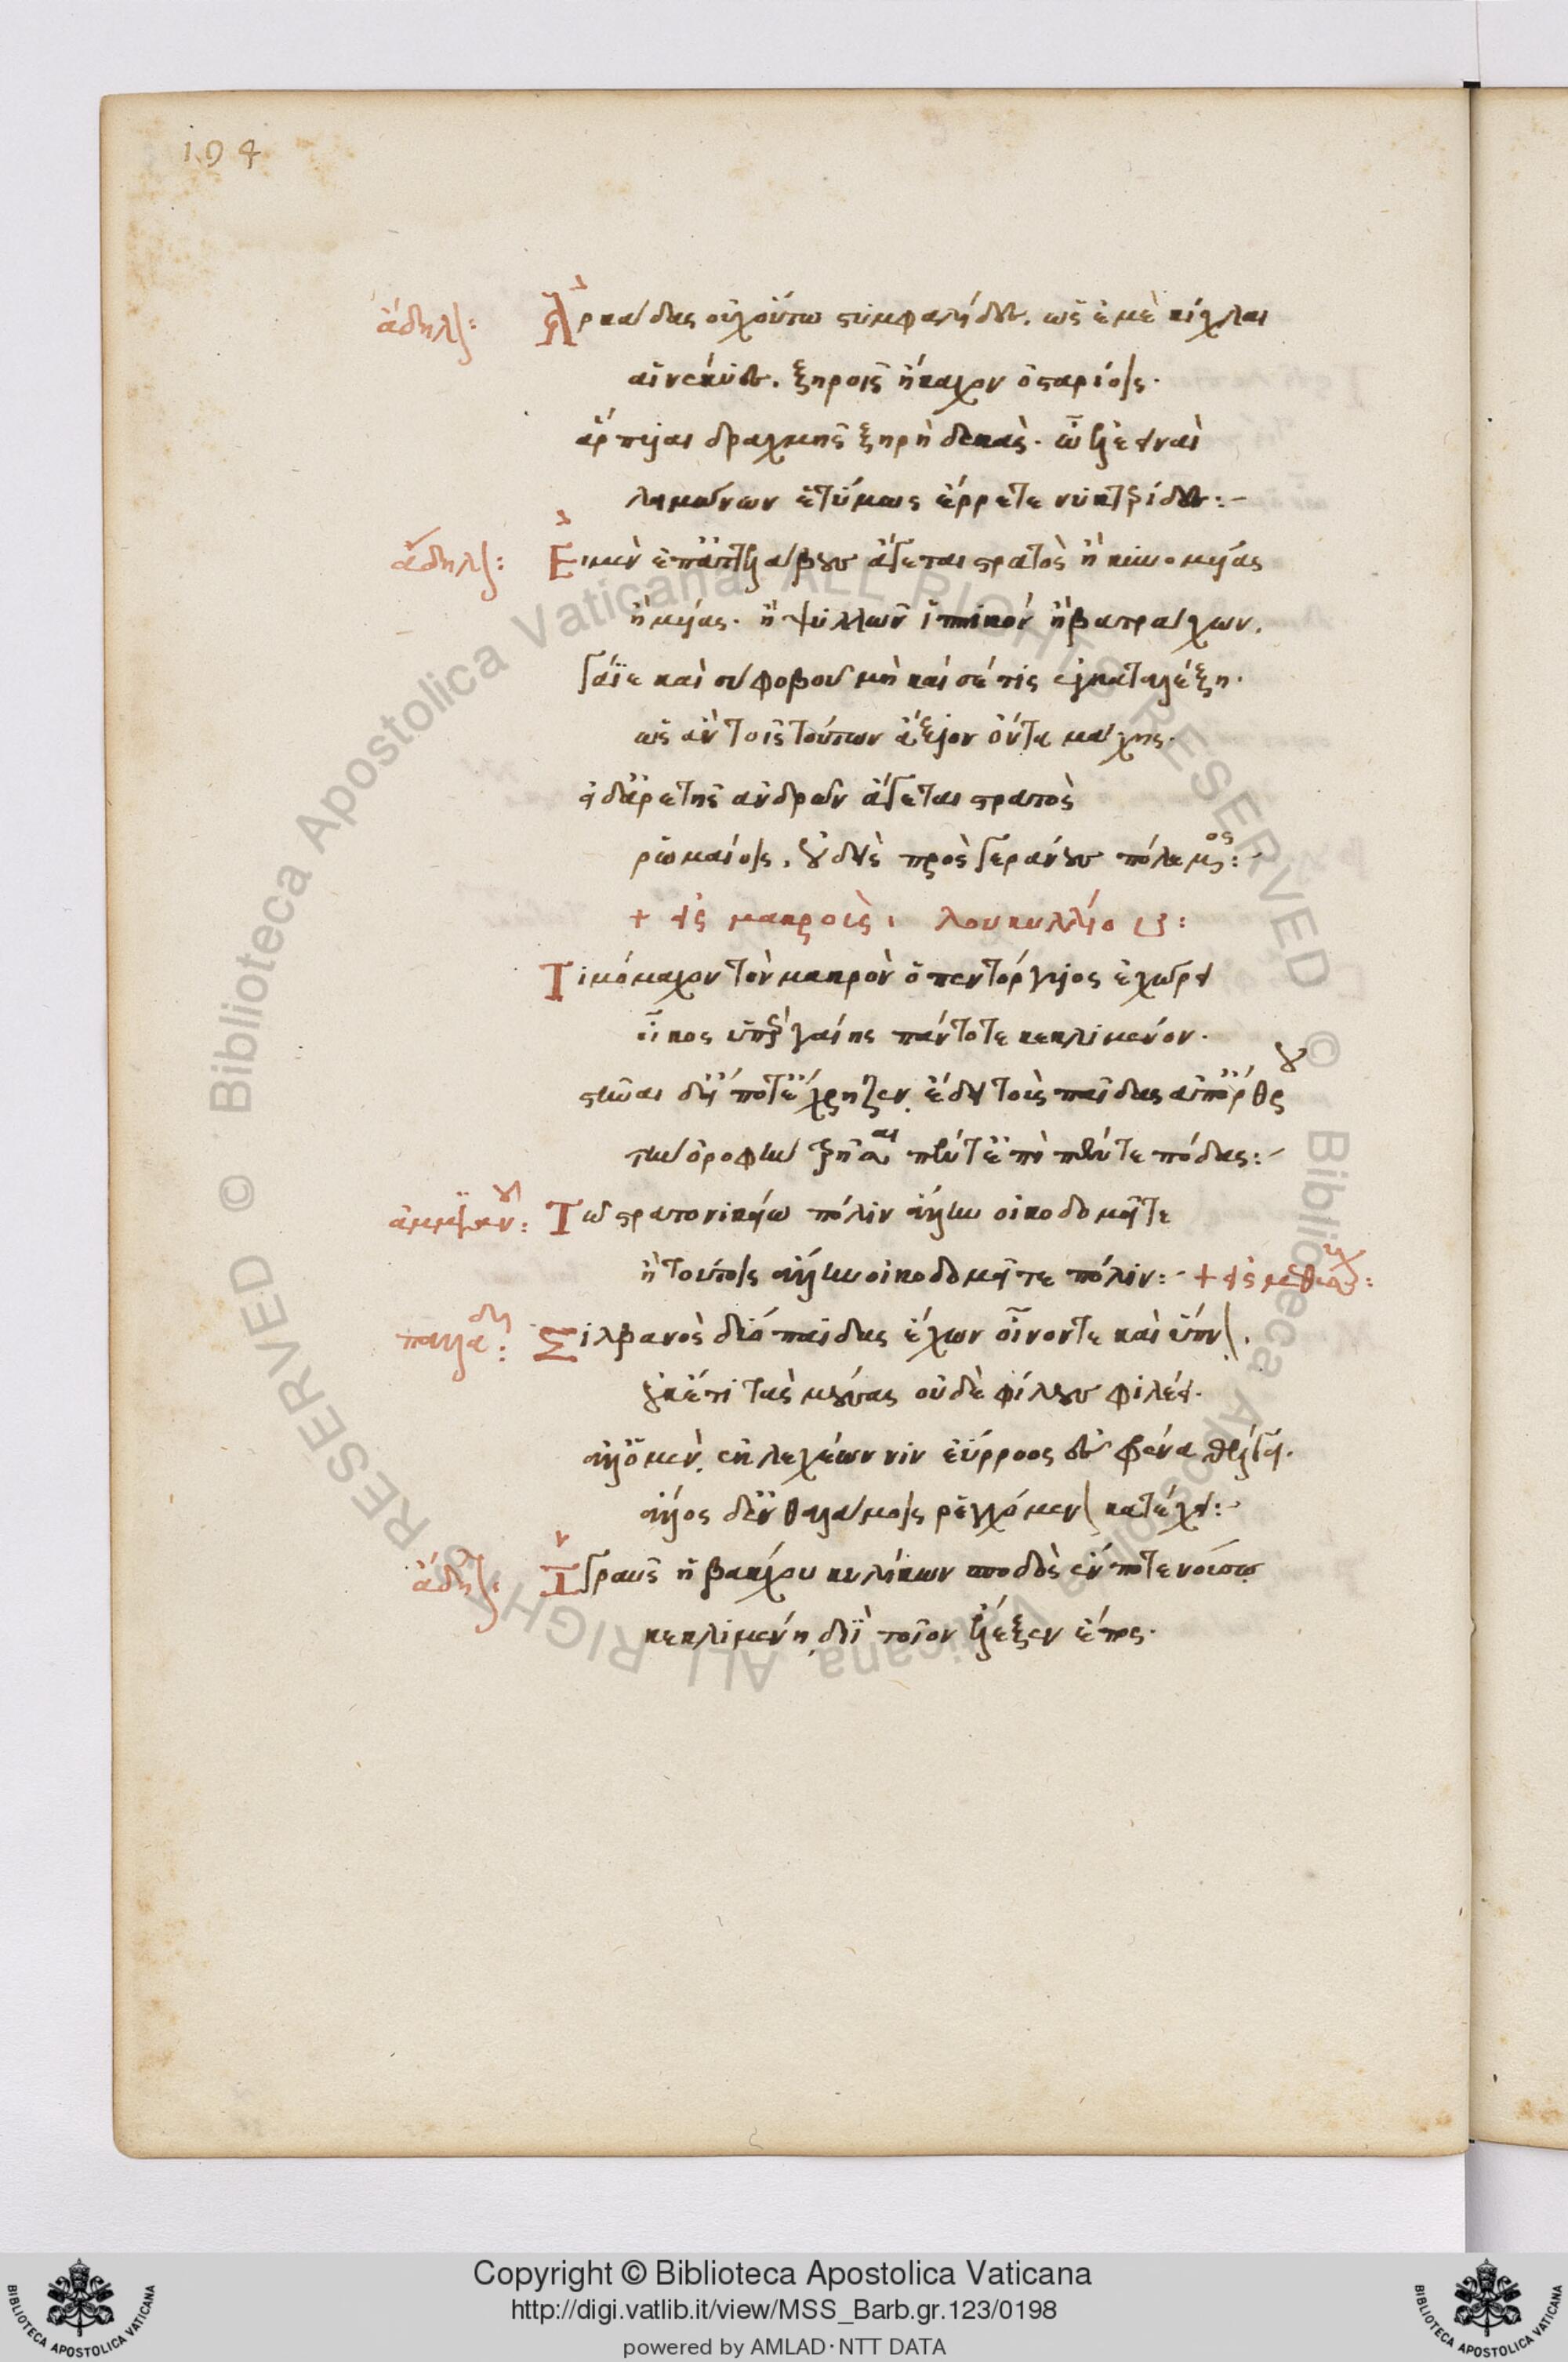 104
ἄδηλον: Ἀρκάδας οὐχ οὕτω στυμφαλίδες. ὡς ἐμὲ κίχλαι
αἱ νέκυες. ξηροῖς ἤκαχον ὀσταρίοις.
ἅρπυιαι δραχμῆς ξηρὴ δεκάς. ὦ ἐλεειναὶ
λειμώνων ἐτύμως ἔρρετε νυκτερίδες:-
ἄδηλον: Εἰ μὲν ἐπ' ἀττελάβους ἄγεται στρατὸς ἢ κυνομυίας
ἢ μυίας. ἢ ψυλλῶν ἱππικὸν ἢ βατράχων.
γάϊε καὶ σὺ φοβοῦ μὴ καί σέ τις ἐγκαταλέξῃ.
ὡς ἂν τοῖς τούτων ἄξιον ὄντα μάχης.
εἰ δ' ἀρετῆς ἀνδρῶν ἄγεται στρατὸς
ῥωμαίοις. οὐδεὶς πρὸς γεράνους πόλεμος:-
+ εἰς μακρούς. λουκυλλίου:
Τιμόμαχον τὸν μακρὸν ὁ πεντόργυιος ἐχώρει
οἶκος ὑπὲρ γαίης πάντοτε κεκλιμένον.
στῆναι δ' εἴ ποτ' ἔχρηζεν. ἔδει τοὺς παῖδας ἀπ' ὄρθρου
τὴν ὀροφὴν τρῆσαι πέντ' ἐπὶ πέντε πόδας:-
ἀμμιανοῦ: Τῷ στρατονικείῳ πόλιν ἄλλην οἰκοδομεῖτε
ἢ τούτοις ἄλλην οἰκοδομεῖτε πόλιν:- + εἰς μεθύσους:
παλλαδᾶ: Σιλβανὸς δύο παῖδας ἔχων οἶνόν τε καὶ ὕπνον.
οὐκέτι τὰς μούσας οὐδὲ φίλους φιλέει.
ἀλλ' ὁ μὲν. ἐκ λεχέων νιν ἐΰρροος ἐς φρένα θέλγει.
ἄλλος δ' ἐν θαλάμοις ῥεγχόμενον κατέχει:-
ἄδηλον: Ἡ γραῦς ἡ βακχοῦ κυλίκων σποδὸς ἔν ποτε νούσῳ
κεκλιμένη. διῒ τοῖον ἔλεξεν ἔπος.
Copyright © Biblioteca Apostolica Vaticana
http://digi.vatlib.it/view/MSS_Barb.gr.123/0198
powered by AMLAD · NTT DATA
BIBLIOTECA APOSTOLICA VATICANA
BIBLIOTECA APOSTOLICA VATICANA
© Biblioteca Apostolica Vaticana ALL RIGHTS RESERVED © Biblioteca Apostolica Vaticana ALL RIGHTS RESERVED